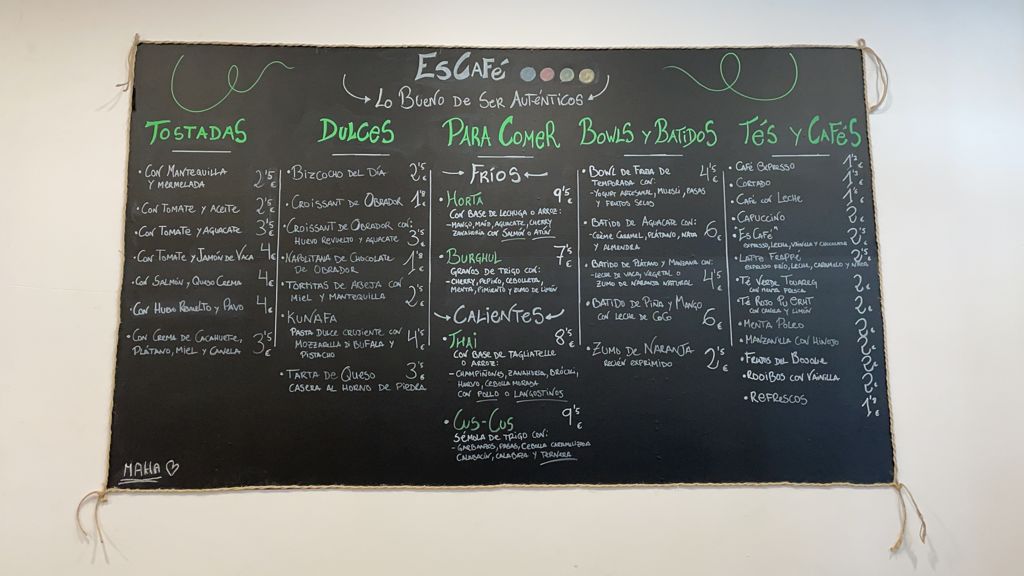 EsCafé
Lo Bueno de ser Auténticos
Tostadas
• Con Mantequilla
y mermelada 2'5 €
• Con Tomate y Aceite 2'5 €
• Con Tomate y Aguacate 3'5 €
• Con Tomate y Jamón de Vaca 4 €
• Con Salmón y Queso Crema 4 €
• Con Huevo Revuelto y Pavo 4 €
• Con Crema de Cacahuete,
Plátano, Miel y Canela 3'5 €
Dulces
• Bizcocho del Día 2'5 €
• Croissant de Obrador 1'8 €
• Croissant de Obrador con:
Huevo Revuelto y Aguacate 3'5 €
• Napolitana de Chocolate
de Obrador 1'8 €
• Tortitas de Abeja con
Miel y Mantequilla 2'5 €
• Kunafa
Pasta dulce crujiente con
Mozzarella di Bufala y
Pistacho 4'5 €
• Tarta de Queso 3'5 €
Casera al horno de piedra
Para Comer
Fríos
• Horta 9'5 €
Con base de lechuga o arroz:
- Mango, Maíz, Aguacate, Cherry
Zanahoria con Salmón o Atún
• Burghul 7'5 €
Granos de trigo con:
- Cherry, Pepino, Cebolleta,
Menta, Pimiento y zumo de limón
Calientes
• Thai 8'5 €
Con base de Tagliatelle
o Arroz:
- Champiñones, Zanahoria, Brócoli,
Huevo, Cebolla morada
con Pollo o Langostinos
• Cus-Cus 9'5 €
Sémola de trigo con:
- Garbanzos, Pasas, Cebolla Caramelizada
Calabacín, Calabaza y Ternera
Bowls y Batidos
• Bowl de Fruta de 4'5 €
Temporada con:
- Yogurt Artesanal, Muesli, Pasas
y Frutos Secos
• Batido de Aguacate con:
- Crème Caramel, Plátano, Nata
y Almendra 6 €
• Batido de Plátano y Manzana con:
- Leche de Vaca, Vegetal o
Zumo de Naranja Natural 4'5 €
• Batido de Piña y Mango
con Leche de Coco 6 €
• Zumo de Naranja
Recién Exprimido 2'5 €
Tés y Cafés
• Café Expresso
• Cortado
• Café con Leche
• Capuccino 2 €
• "EsCafé" 2'5 €
Expresso, Leche, Vainilla y Chocolate
• Latte Frappé
Expresso Frío, Leche, Caramelo y
• Té Verde Touareg 2 €
con Menta Fresca
• Té Rojo Pu Erht 2 €
con Canela y Limón
• Menta Poleo 2 €
• Manzanilla con Hinojo 2 €
• Frutos del Bosque 2 €
• Rooibos con Vainilla 2 €
• Refrescos
MAHA